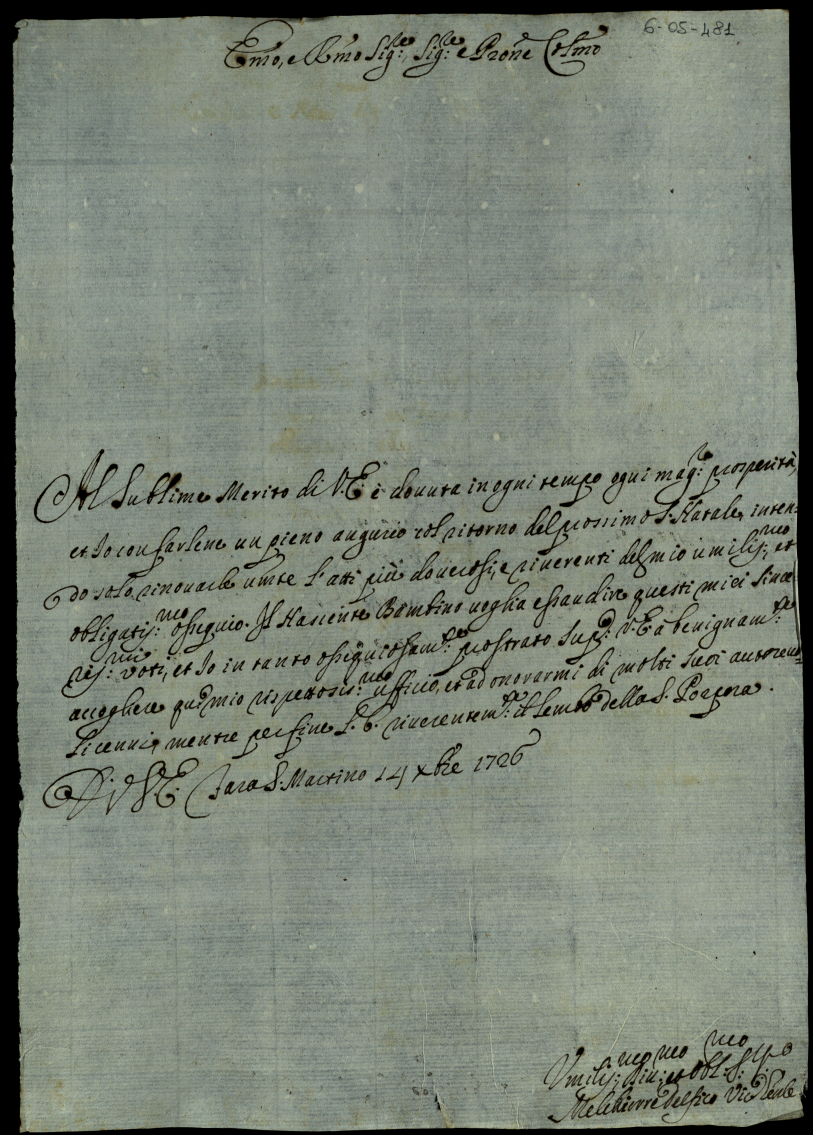 6-05-481
Emo, e Rmo Sig:re, Sig:re e Prone Colmo
Al Sublime Merito di V.E. è douuta in ogni tempo ogni mag:re prosperità,
et Io con farlene un pieno augurio col ritorno del prossimo S. Natale, inten=
do solo rinouarle umte l'atti più douerosi, e riuerenti del mio umilis:mo, et
obligatis:mo ossequio. Il Nascente Bambino uoglia essaudire questi miei since=
ris:mi voti, et Io in tanto ossequiosam:te prostrato sup:co V.E. à benignam:te
accogliere qu mio rispettosis:mo ufficio, et ad onorarmi di molti suoi autoreuo=
li cenni, mentre per fine l. b. riuerentem:te il lembo della S. Porpora.
Di V.E. Fara S. Martino 14 xbre 1726
Umilis:mo Diu:mo et Obl:mo S:re
Melchiorre Delfico Vic: